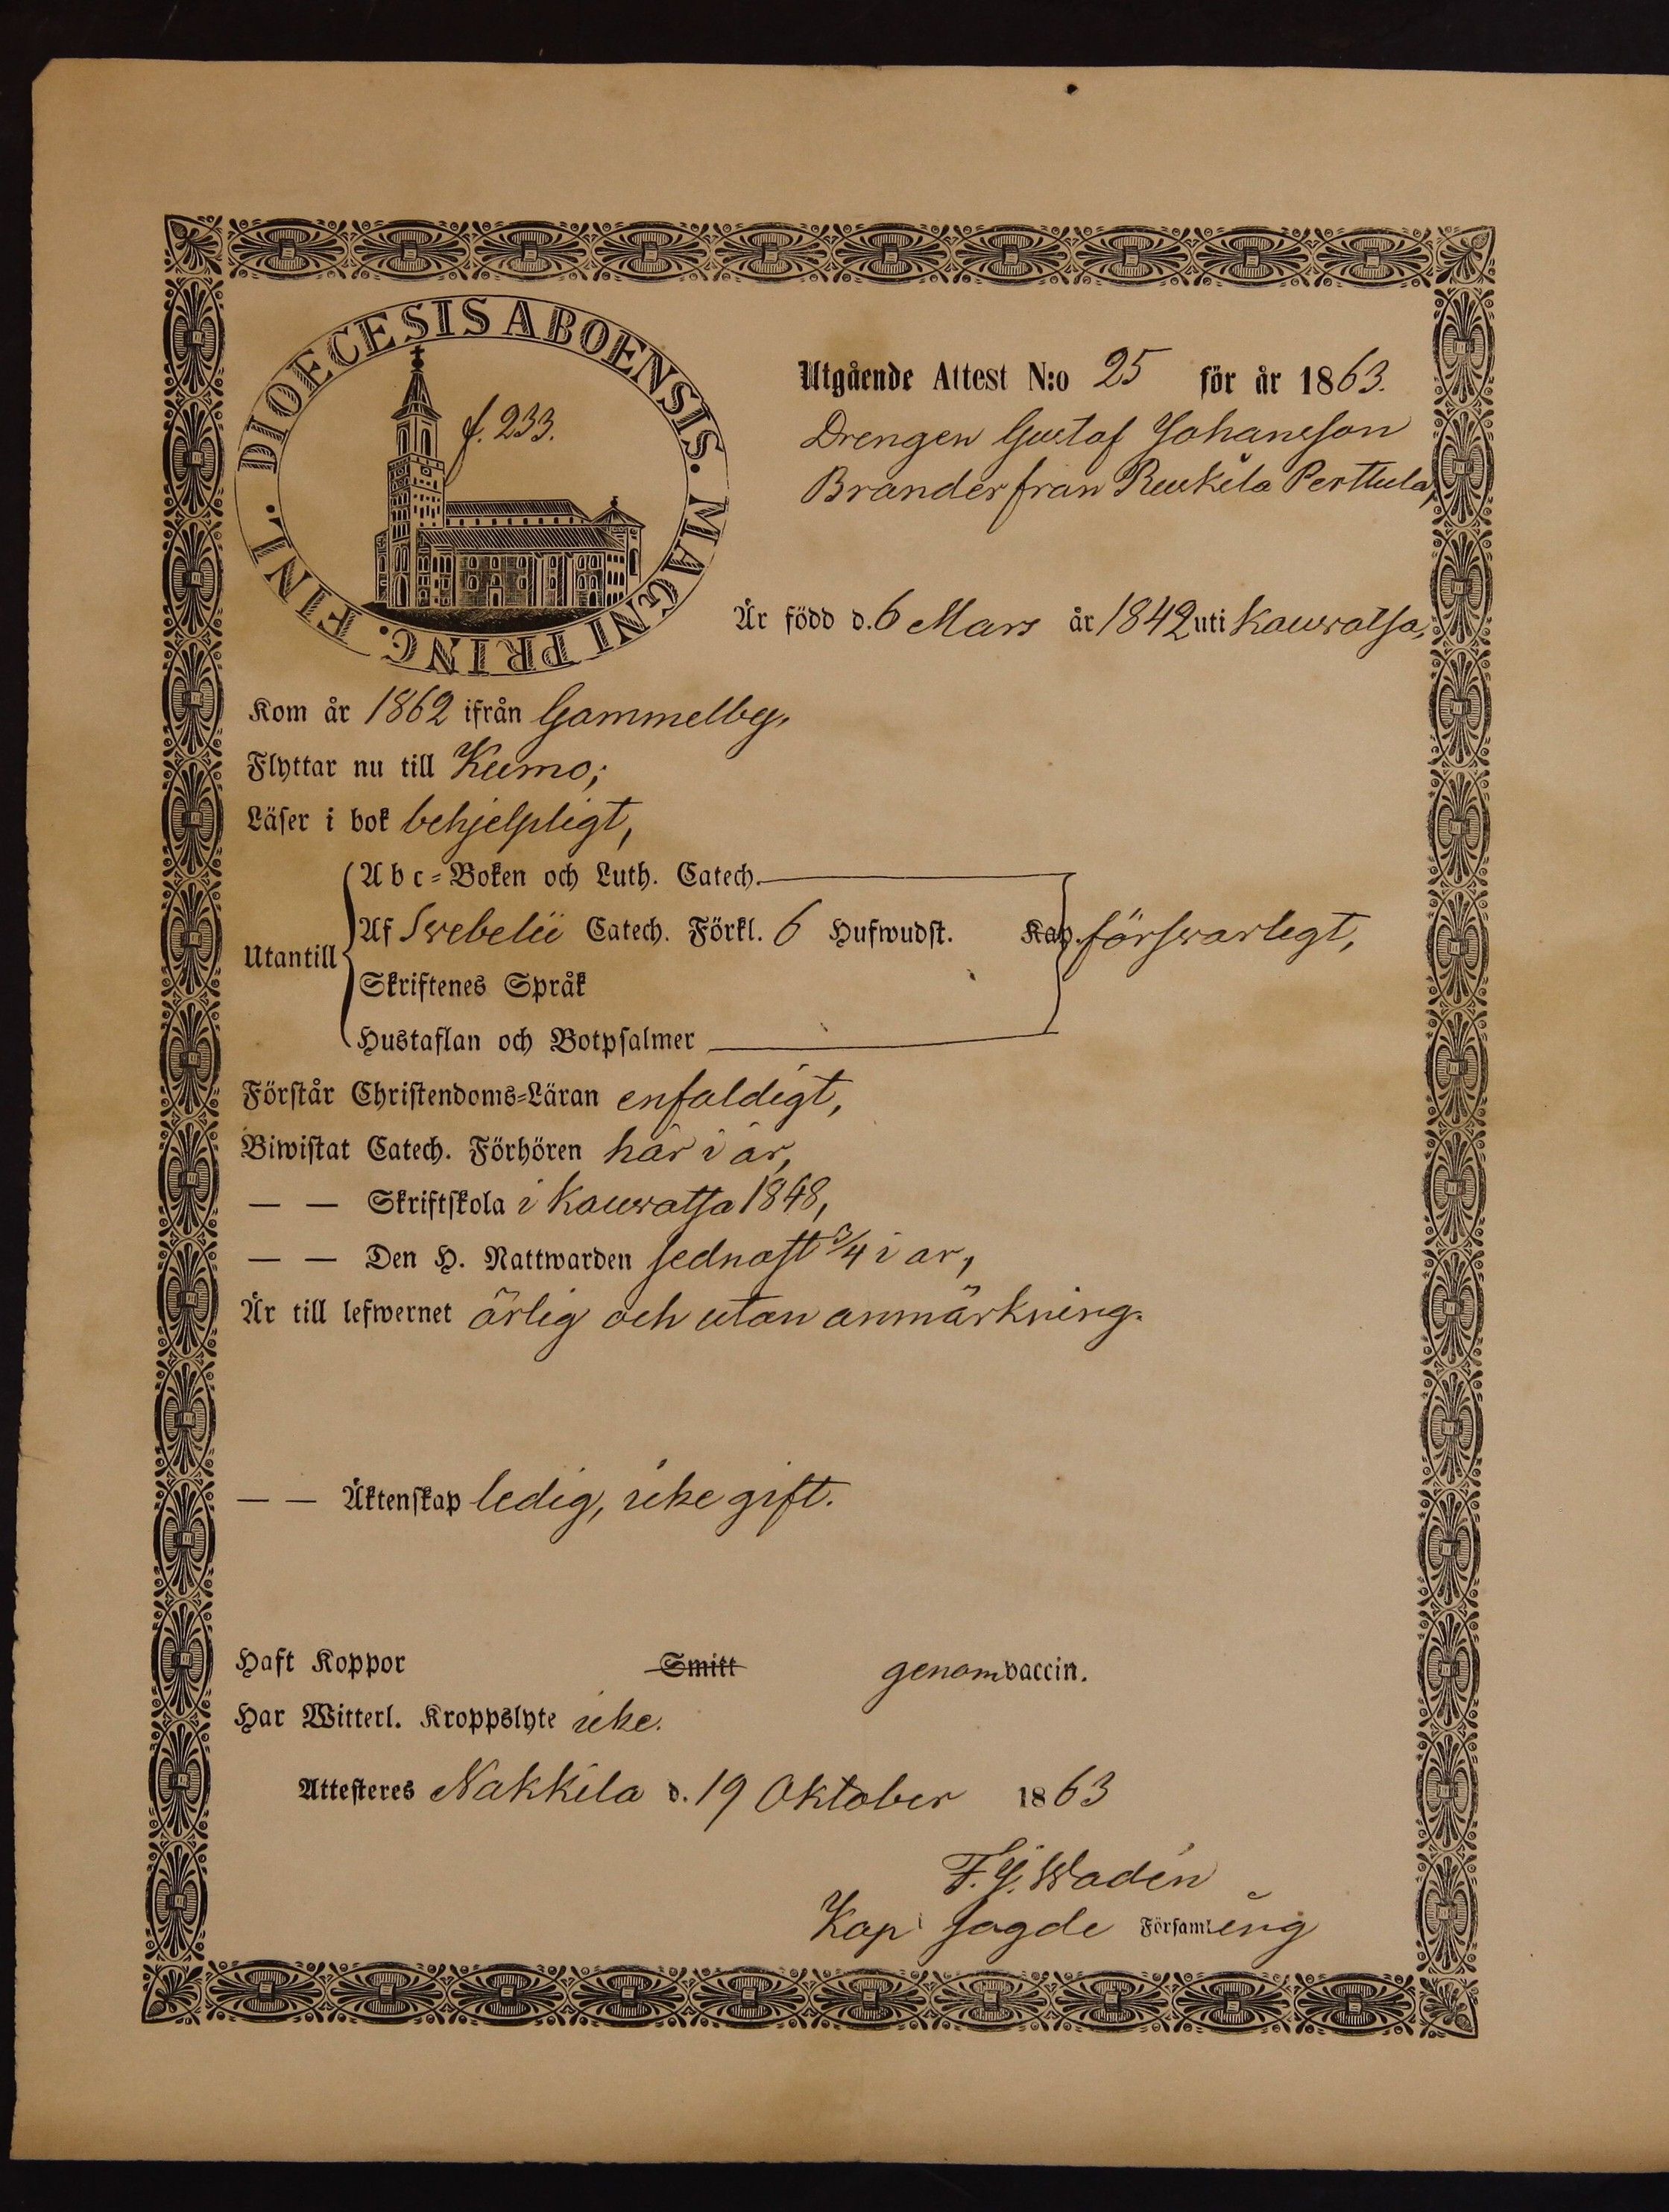 DIOECESIS ABOENSIS. MAGNI PRINC. FINL.
f. 233.
Utgående Attest N:o 25 för år 1863.
Drengen Gustaf Johansson
Brander från Ruskila Perttula,
Är född d. 6 Mars år 1842 uti Kauvatsa,
Kom år 1862 ifrån Gammelby,
Flyttar nu till Kumo;
Läser i bok behjelpligt,
Abc-Boken och Luth. Catech.
Utantill Af Svebelii Catech. Förkl. 6 Hufwudst. Kap. försvarligt,
Skriftenes Språk
Hustaflan och Botpsalmer
Förstår Christendoms-Läran enfaldigt,
Biwistat Catech. Förhören här i år,
— — Skriftskola i Kauvatsa 1848,
— — Den H. Nattwarden sednast 3/4 i år,
Är till lefwernet ärlig och utan anmärkning.
— — Äktenskap ledig, icke gift.
Haft Koppor Smitt genom vaccin.
Har Witterl. Kroppslyte icke.
Attesteres Nakkila d. 19 Oktober 1863
F. J. Wadén
Kap i sagde Församling